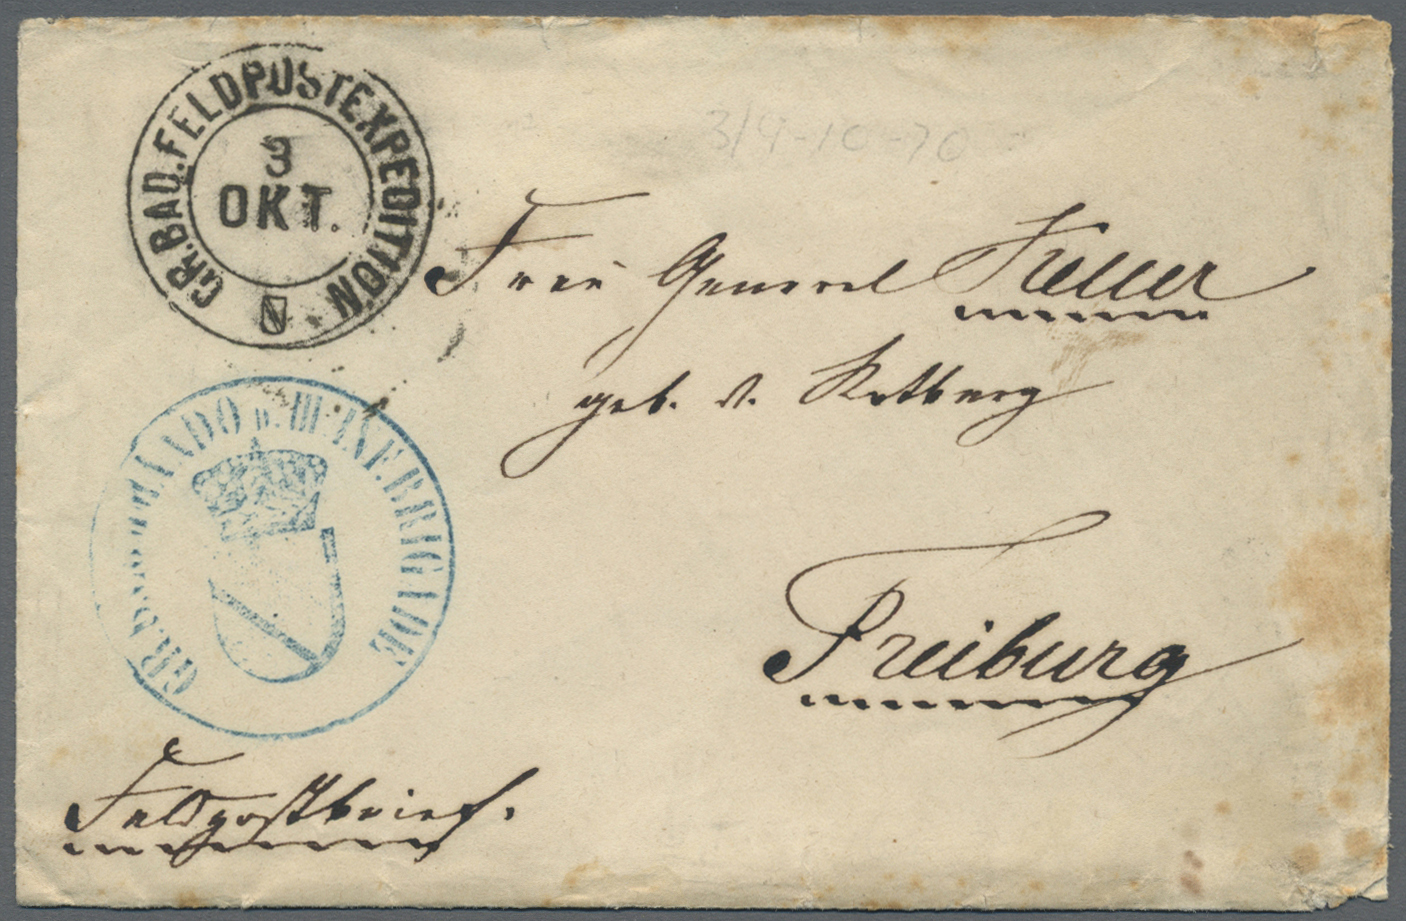 GR. BAD. FELDPOSTEXPEDITION.
3
OKT.
3/4-10-70
Frau General Keller
geb. v. Rotberg
GR. COMMANDO D. III. INF. BRIGADE
Freiburg
Feldpostbrief.